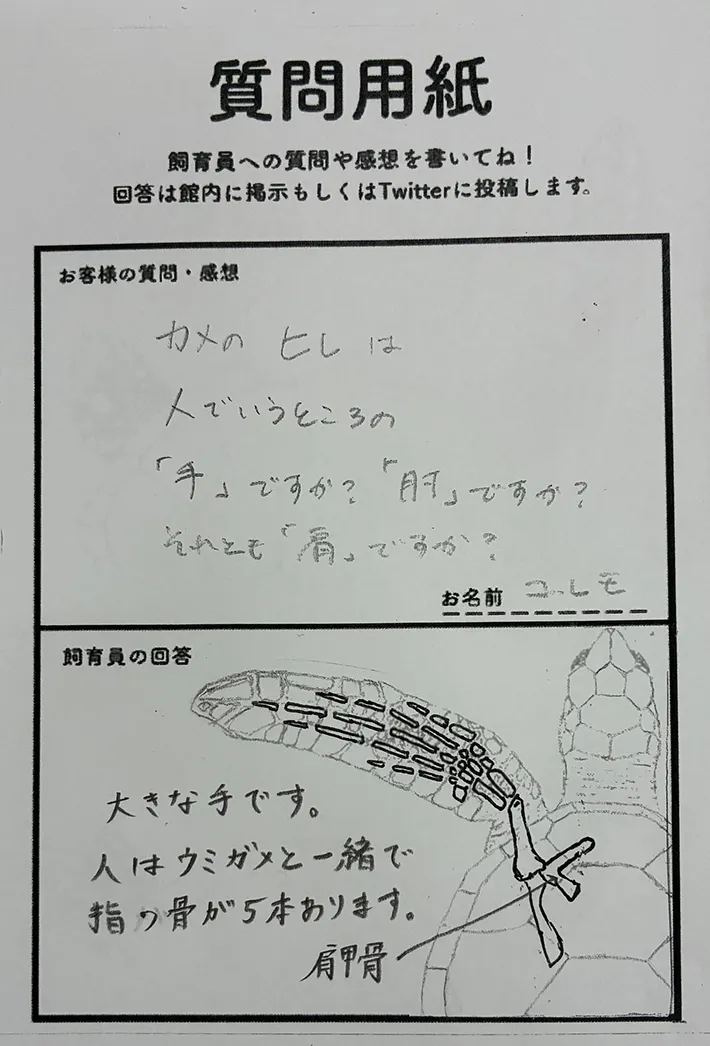 質問用紙
飼育員への質問や感想を書いてね！
回答は館内に掲示もしくはTwitterに投稿します。
お客様の質問・感想
カメの ヒレ は
人でいうところの
「手」ですか？「肘」ですか？
それとも「肩」ですか？
お名前
飼育員の回答
大きな手です。
人はウミガメと一緒で
指の骨が5本あります。
肩甲骨